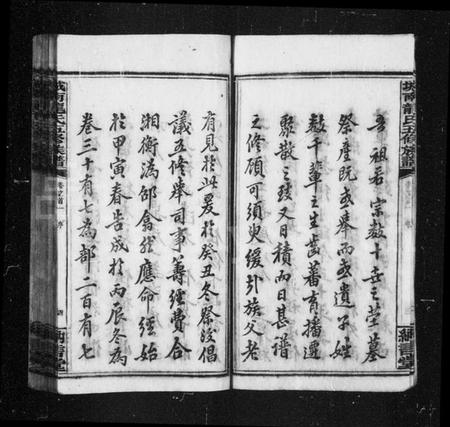 吾祖若宗數十世之塋墓
祭產既或舉而或遺子姓
數千輩之生齒蕃育播遷
聚散之踪又日積而日甚譜
之修顧可須臾緩引族父老
有見於此爰於癸丑冬祭後倡
議五修舉司事籌經費合
湘衡潙邵翕然應命經始
於甲寅春告成於丙辰冬為
卷三十有七為部二百有七
城南龍氏五修族譜
卷首一
序
城南龍氏五修族譜
卷首一
序